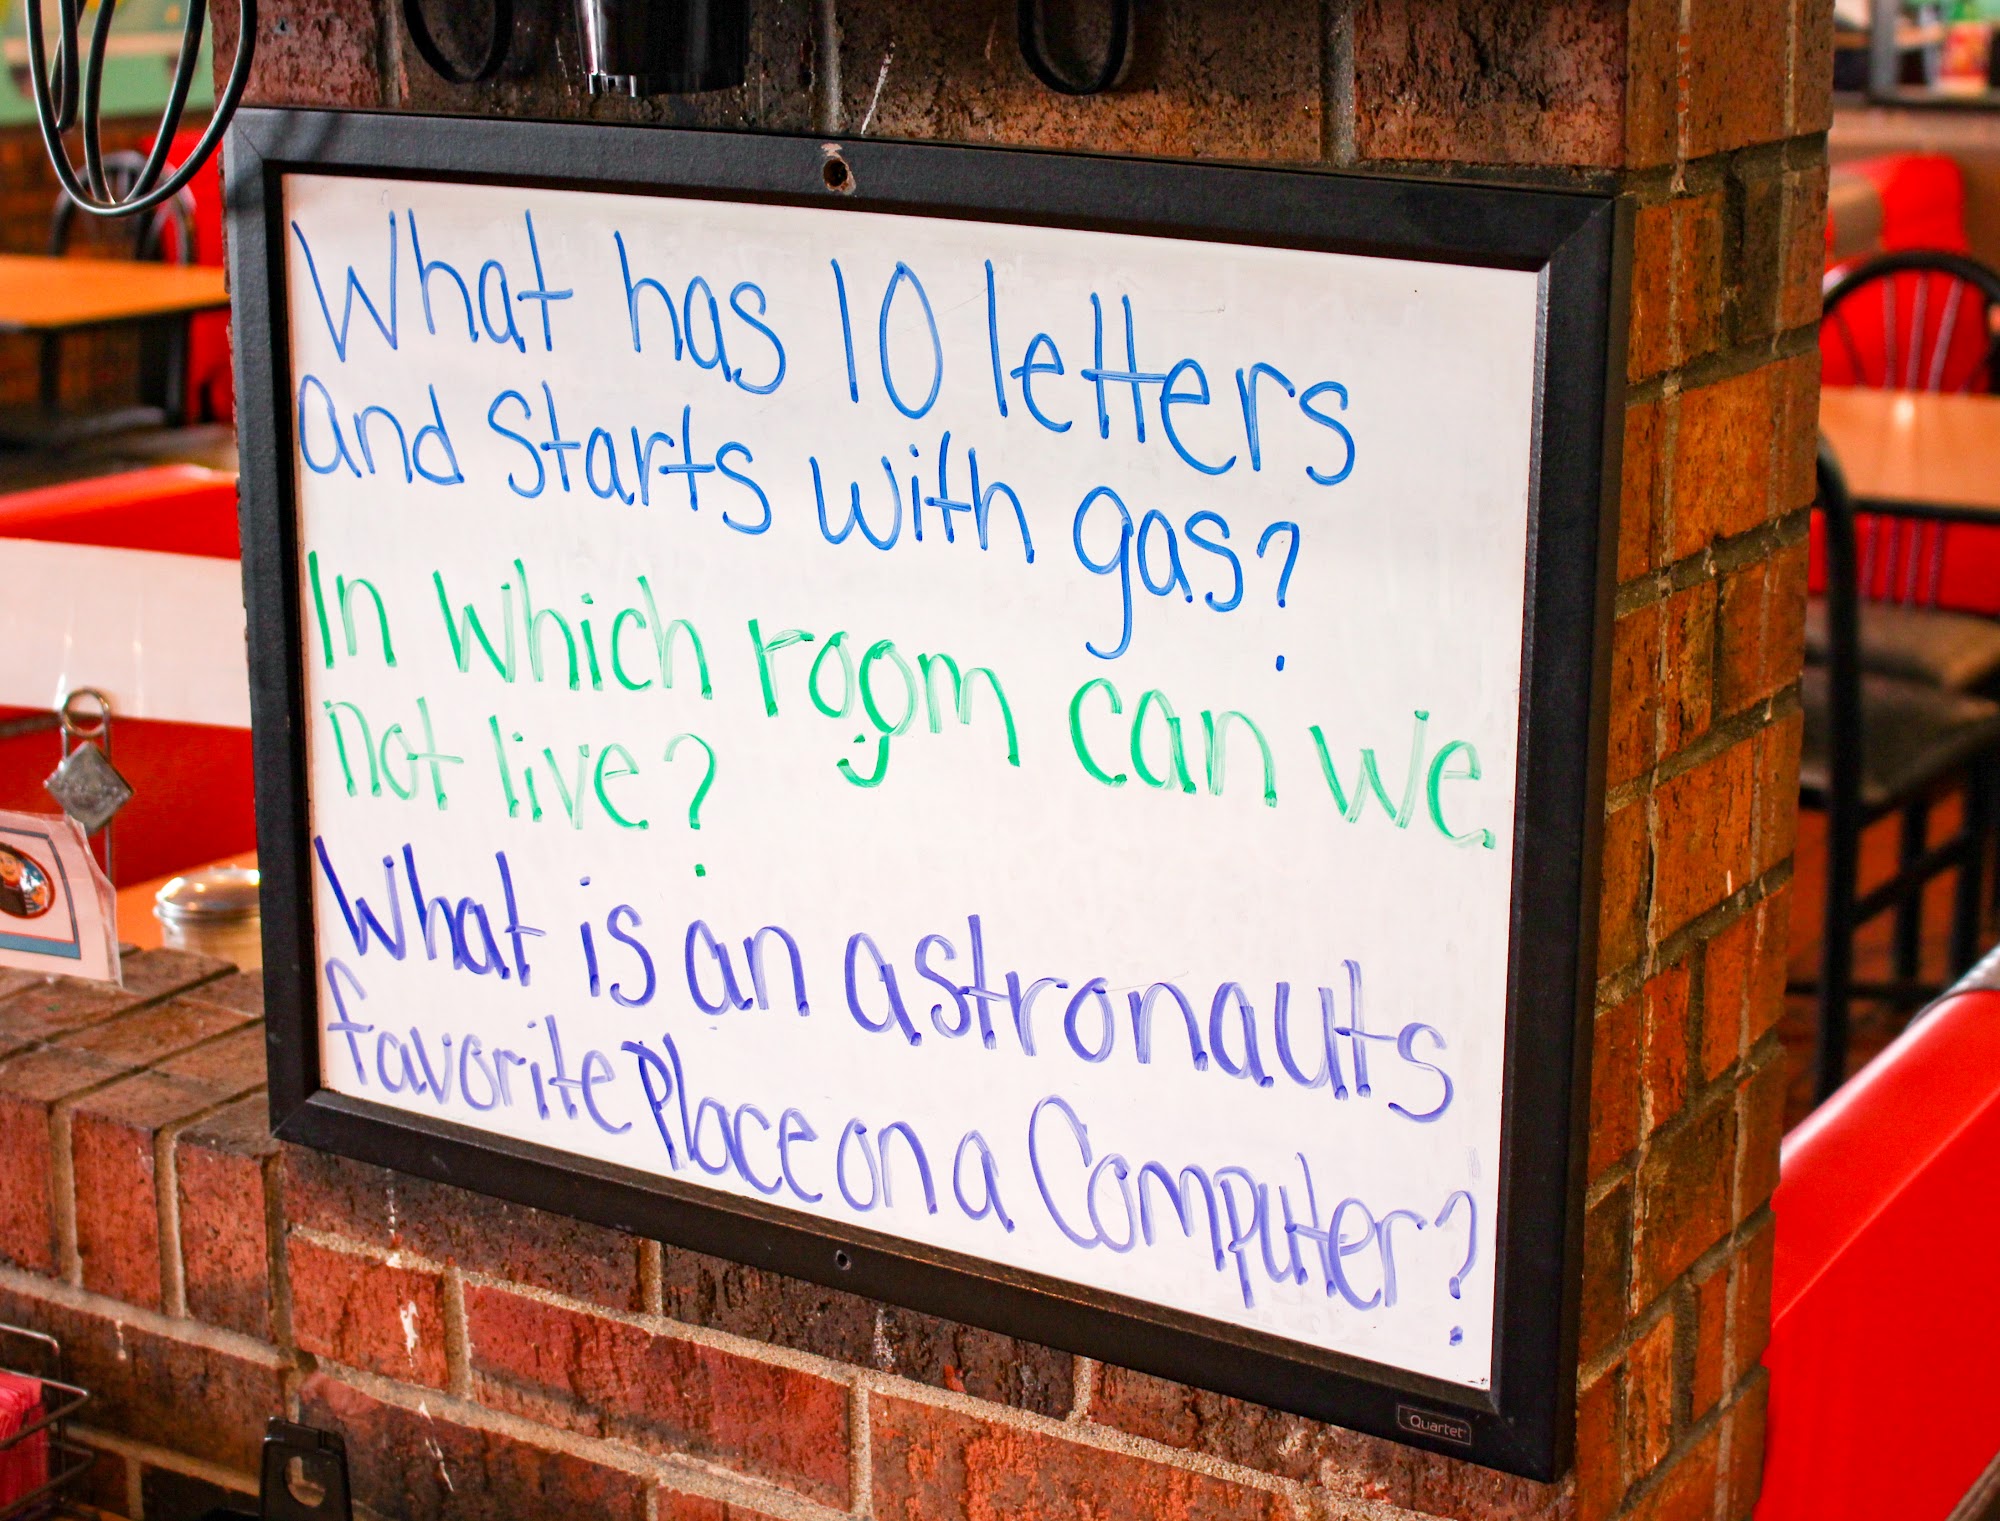 What has 10 letters
and starts with gas?
In which room can we
not live?
What is an astronauts
favorite Place on a Computer?
Quartet